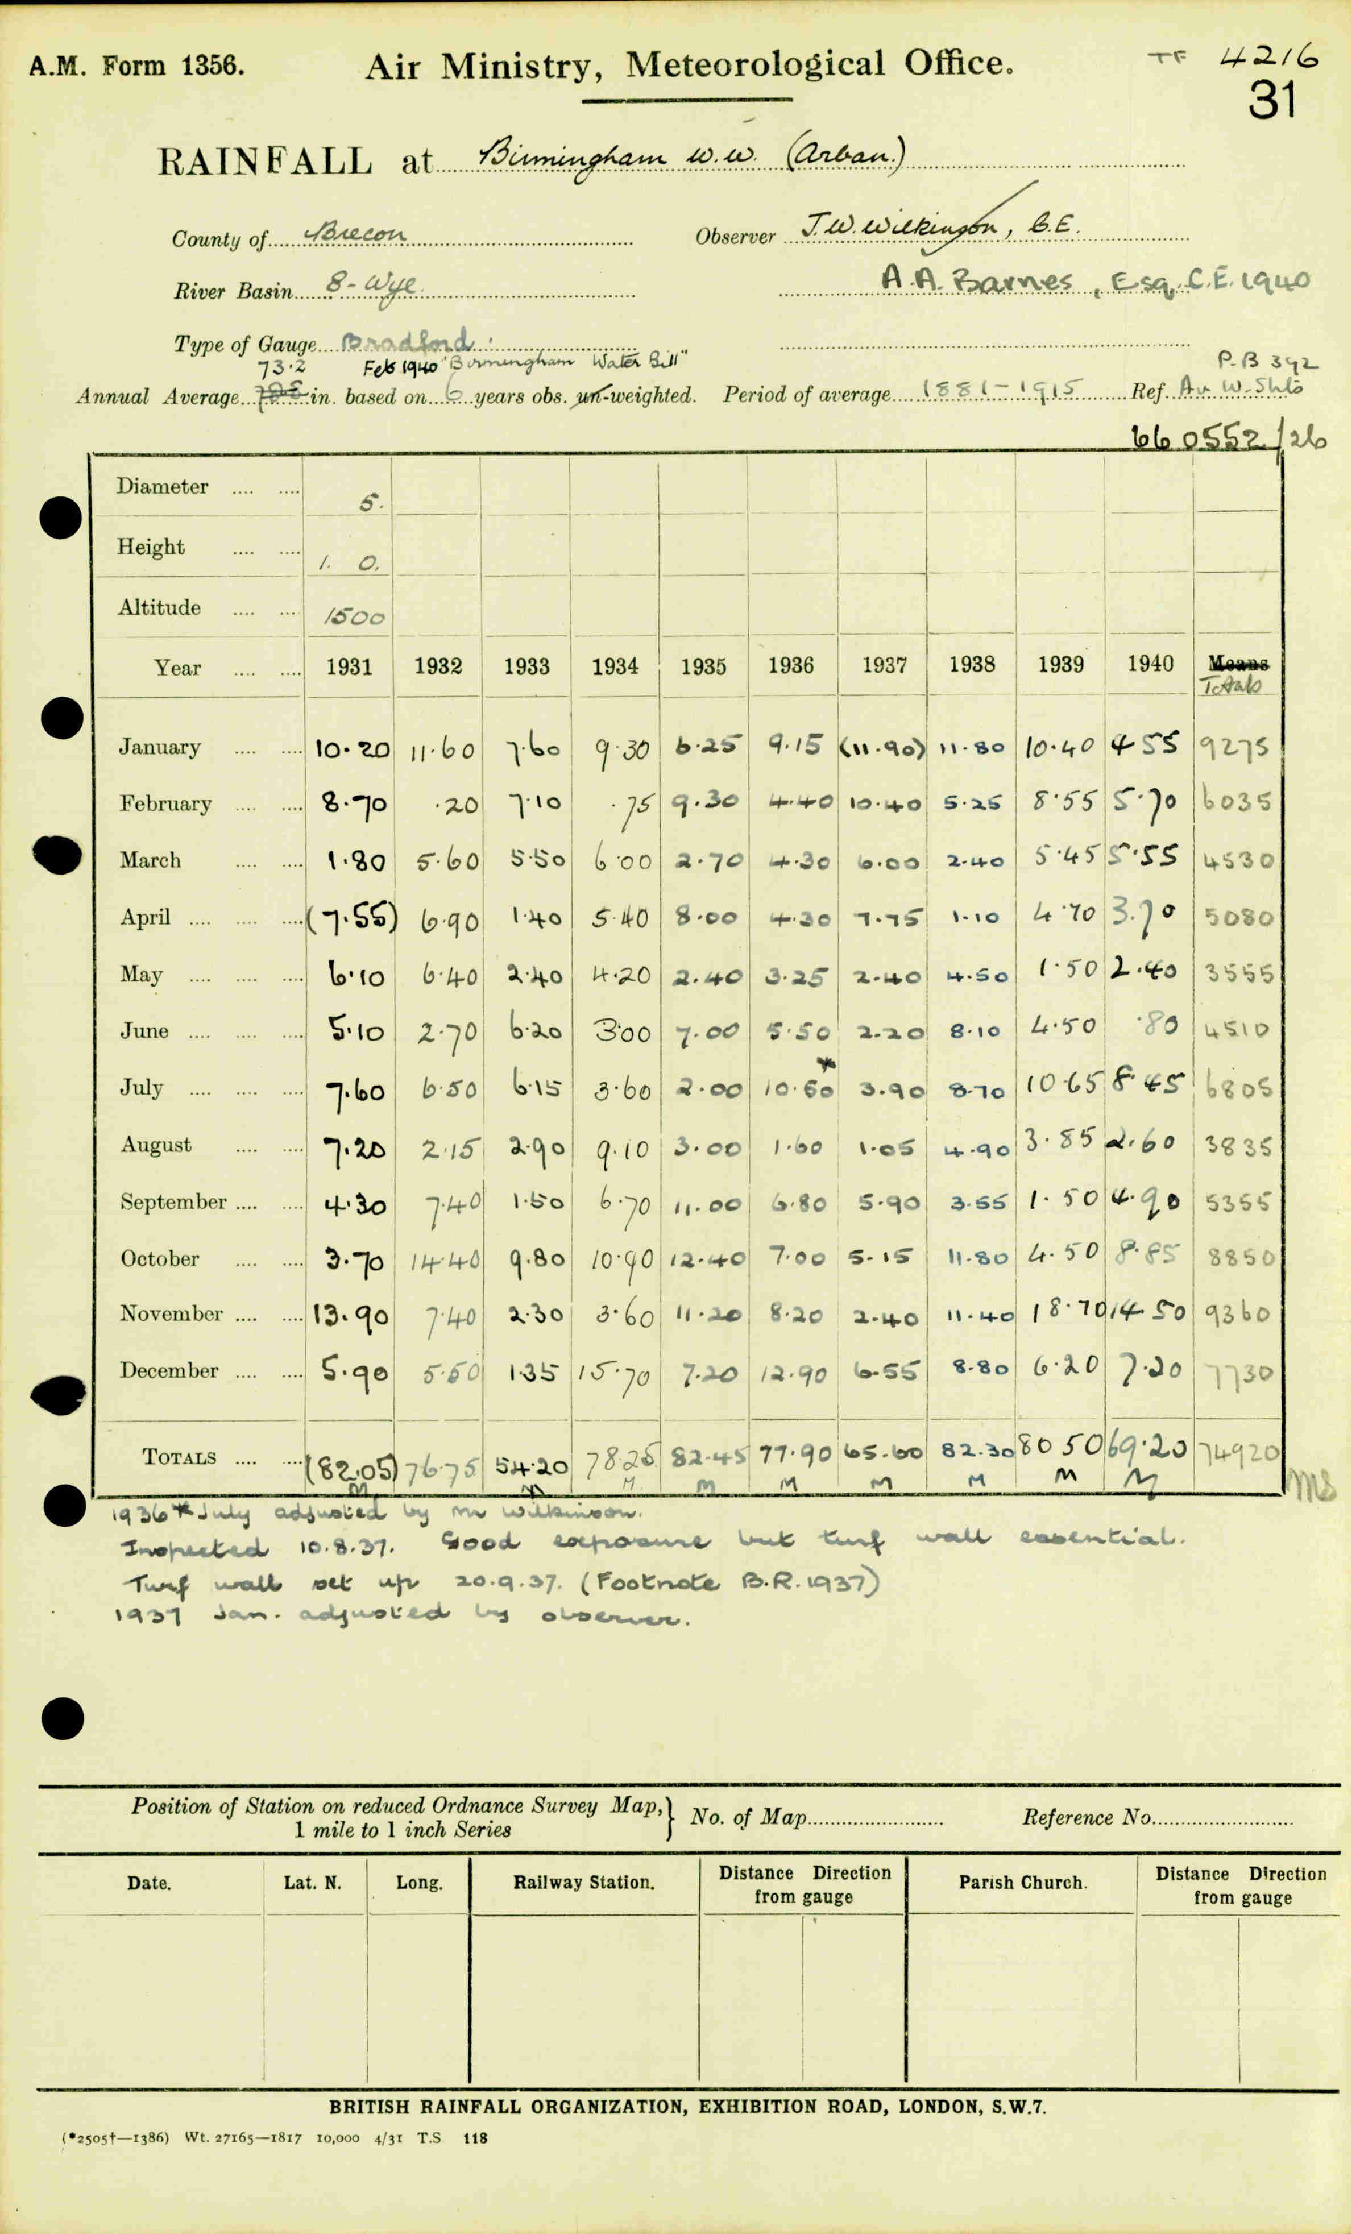 A.M. Form 1356. Air Ministry, Meteorological Office. TF 4216
31
RAINFALL at Birmingham W.W. (Arban.)
County of Brecon Observer J.W. Wilkinson, C.E.
River Basin 8 - Wye A.A. Barnes, Esq. C.E. 1940
Type of Gauge Bradford
73.2 Feb 1940 "Birmingham Water Bill" P.B 392
Annual Average in. based on 6 years obs. un-weighted. Period of average 1881-1915 Ref. Av. W. Shts
660552/26
Diameter .... .... 5.
Height .... .... 1. 0.
Altitude .... .... 1500
Year .... .... 1931 1932 1933 1934 1935 1936 1937 1938 1939 1940 Means
Totals
January .... .... 10.20 11.60 7.60 9.30 6.25 9.15 (11.90) 11.80 10.40 4.55 9275
February .... .... 8.70 .20 7.10 .75 9.30 4.40 10.40 5.25 8.55 5.70 6035
March .... .... 1.80 5.60 5.50 6.00 2.70 4.30 6.00 2.40 5.45 5.55 4530
April .... .... .... (7.55) 6.90 1.40 5.40 8.00 4.30 7.75 1.10 4.70 3.70 5080
May .... .... .... 6.10 6.40 2.40 4.20 2.40 3.25 2.40 4.50 1.50 2.40 3555
June .... .... .... 5.10 2.70 6.20 3.00 7.00 5.50 2.20 8.10 4.50 .80 4510
July .... .... .... 7.60 6.50 6.15 3.60 2.00 10.50* 3.90 8.70 10.65 8.45 6805
August .... .... 7.20 2.15 2.90 9.10 3.00 1.60 1.05 4.90 3.85 2.60 3835
September .... .... 4.30 7.40 1.50 6.70 11.00 6.80 5.90 3.55 1.50 4.90 5355
October .... .... 3.70 14.40 9.80 10.90 12.40 7.00 5.15 11.80 4.50 8.85 8850
November .... .... 13.90 7.40 2.30 3.60 11.20 8.20 2.40 11.40 18.70 14.50 9360
December .... .... 5.90 5.50 1.35 15.70 7.20 12.90 6.55 8.80 6.20 7.20 7730
TOTALS .... .... (82.05) 76.75 54.20 78.25 82.45 77.90 65.60 82.30 80.50 69.20 74920
M M M M M M M M M MS
1936 * July adjusted by Mr Wilkinson.
Inspected 10.8.37. Good exposure but turf wall essential.
Turf wall set up 20.9.37. (Footnote B.R. 1937)
1937 Jan. adjusted by observer.
Position of Station on reduced Ordnance Survey Map,} No. of Map Reference No.
1 mile to 1 inch Series
Date. Lat. N. Long. Railway Station. Distance Direction from gauge Parish Church. Distance Direction from gauge
BRITISH RAINFALL ORGANIZATION, EXHIBITION ROAD, LONDON, S.W.7.
(*2505†—1386) Wt. 27165—1817 10,000 4/31 T.S 118